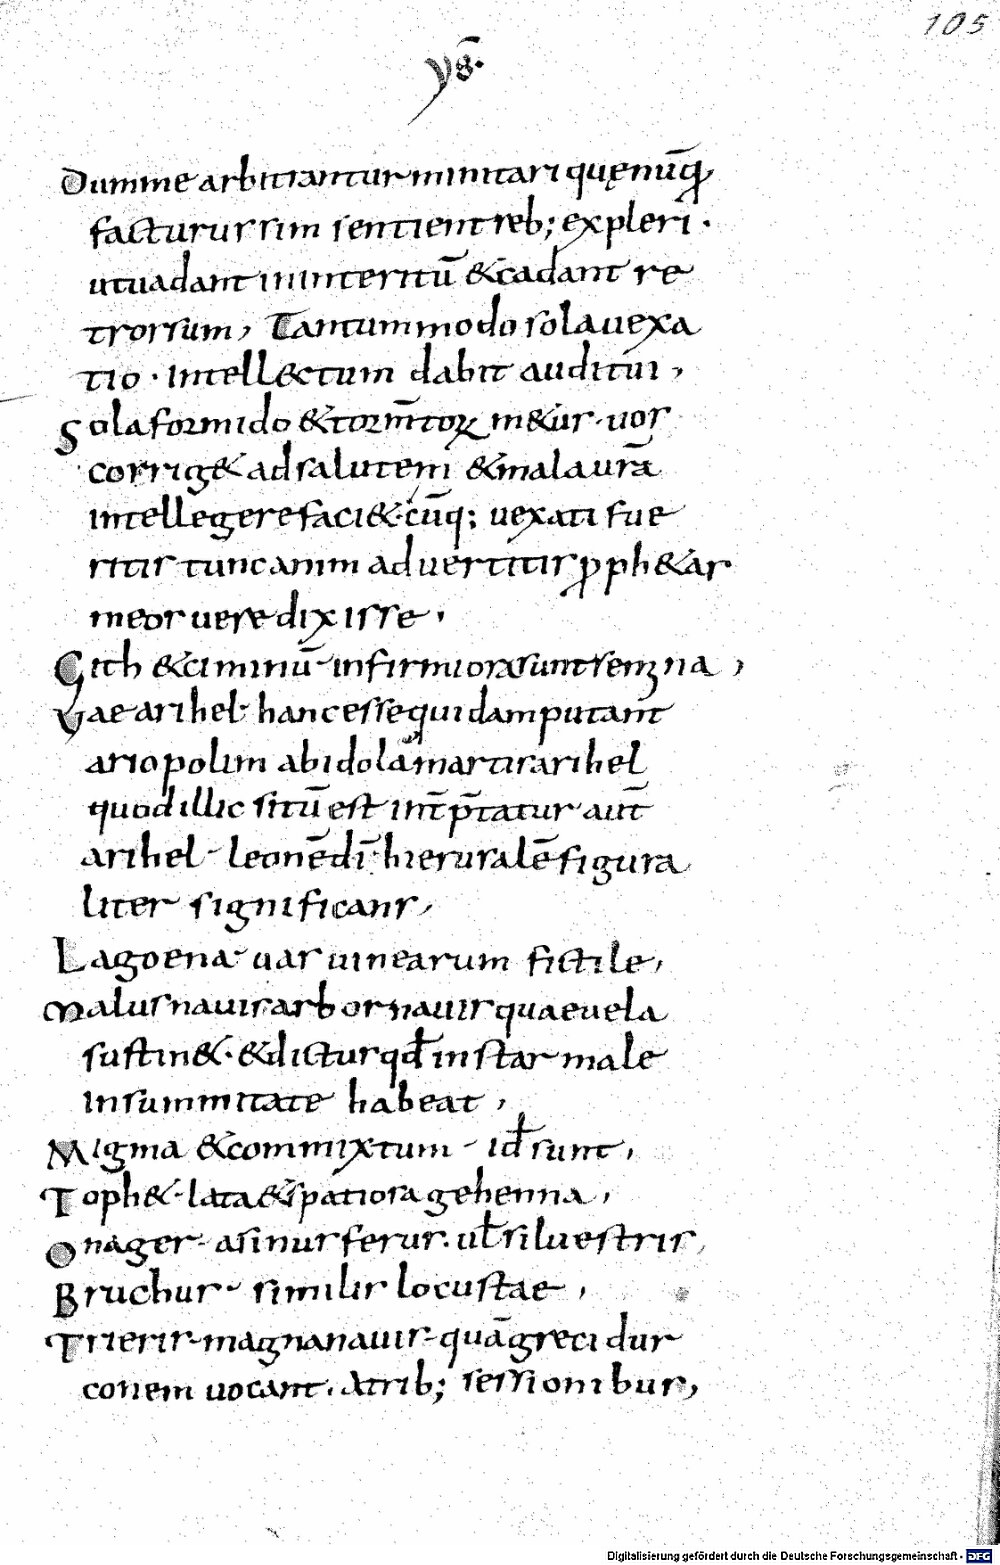 105
ys̄.
Dum me arbitrantur minitari quę nūq̄
facturus sim sentient reb; expleri .
ut uadant in interitū & cadant re
trorsum, Tantummodo sola uexa
tio . intellectum dabit auditui ,
Sola formido & torm̄torꝝ m&us . uos
corrig& ad salutem & mala ur̄a
intellegere faci&. cūq; uexati fue
ritis tunc anim aduertitis ꝓph&as
meos uere dixisse .
Gith & ciminū infirmiora sunt semina ,
Vae arihel hanc esse quidam putant
ariopolim ab idola martis arihel
quod illic sitū est int̄p̄tatur aut̄
arihel leonē dī hierusalē figura
liter significans ,
Lagoena uas uinearum fictile ,
Malus nauis arbor nauis quae uela
sustin&. & dictus qđ instar male
in summitate habeat ,
Migma & commixtum iđ sunt ,
Toph& lata & spatiosa gehenna ,
Onager asinus ferus . uł siluestris ,
Bruchus similis locustae ,
Trieris magna nauis quā greci dur
conem uocant . A trib; sessionibus ,
Digitalisierung gefördert durch die Deutsche Forschungsgemeinschaft - DFG